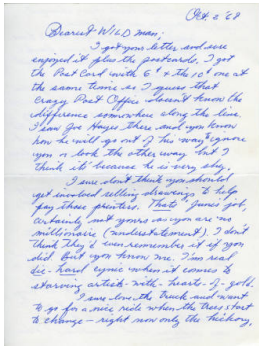 Oct. 2 '69
Dearest WILD man;
I got your letter and sure
enjoyed it plus the postcards. I got
the Post Card with 6¢ & the 10¢ one at
the same time so I guess that
crazy Post Office doesn't know the
difference somewhere along the line.
I saw Joe Hayes there and you know
how he will go out of his way ignore
you or look the other way but I
think it because he is very shy.
I sure don't think you should
get involved selling drawings to help
pay those printers. Thats' Junis' job,
certainly not yours as you are no
millionaire (understatement). I don't
think they'd even remember it if you
did. But you know me. I'm real
die-hard cynic when it comes to
starving artists-with-hearts-of-gold.
I sure love the truck and want
to go for a nice ride when the trees start
to change - right now only the hickory,